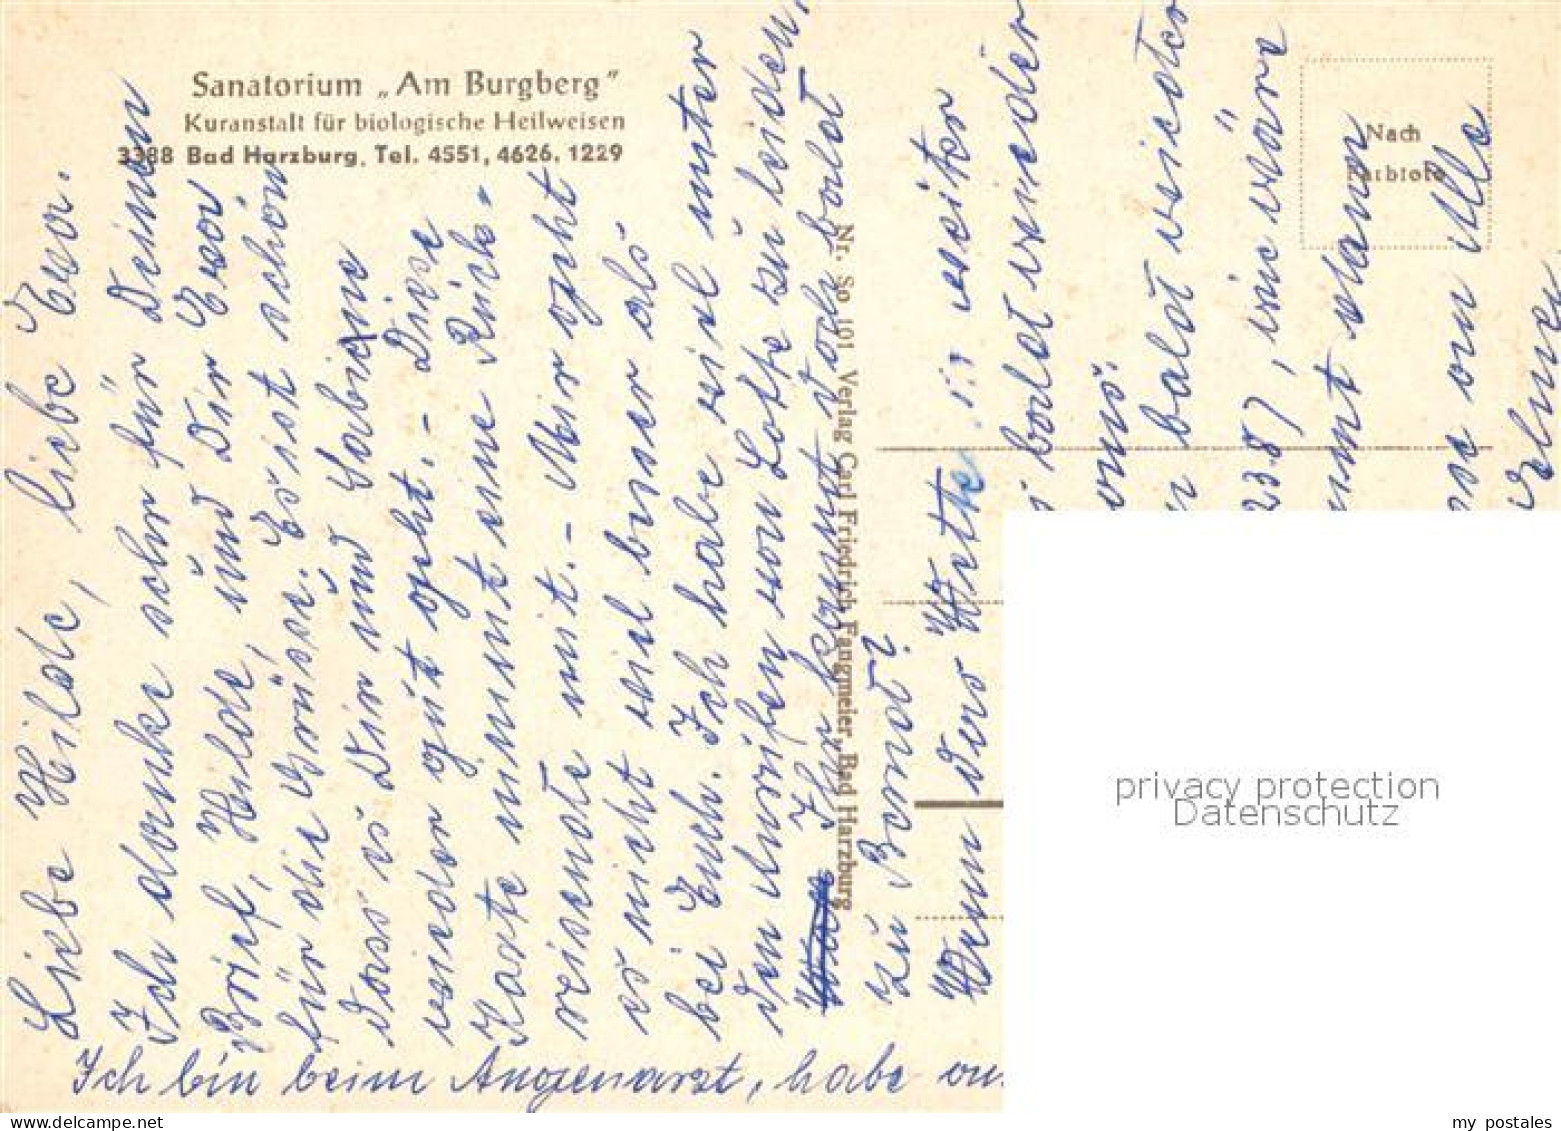 Sanatorium „Am Burgberg"
Kuranstalt für biologische Heilweisen
3388 Bad Harzburg, Tel. 4551, 4626, 1229
Nach
Farbfoto
Nr. So 101 Verlag Carl Friedrich Fangmeier, Bad Harzburg
Liebe Hilde, liebe Eva.
Ich danke sehr für Deinen
Brief, Hilde, und Dir Eva
für die Grüsse. Es ist schön
dass es Dir und Sabiene
wieder gut geht. - Diese
Karte nimmt eine Rück-
reisende mit. - Mir geht
es nicht viel besser als
bei Euch. Ich habe viel unter
den Anrufen von Lotte zu leiden.
Ihr kommt doch bald
zu Bernd?
Wenn das Wette weiter
bald wieder
uns.
bald wieder
23.8), wie wäre
dann
an Alle
Ich bin beim Augenarzt, habe
privacy protection
Datenschutz
my postales